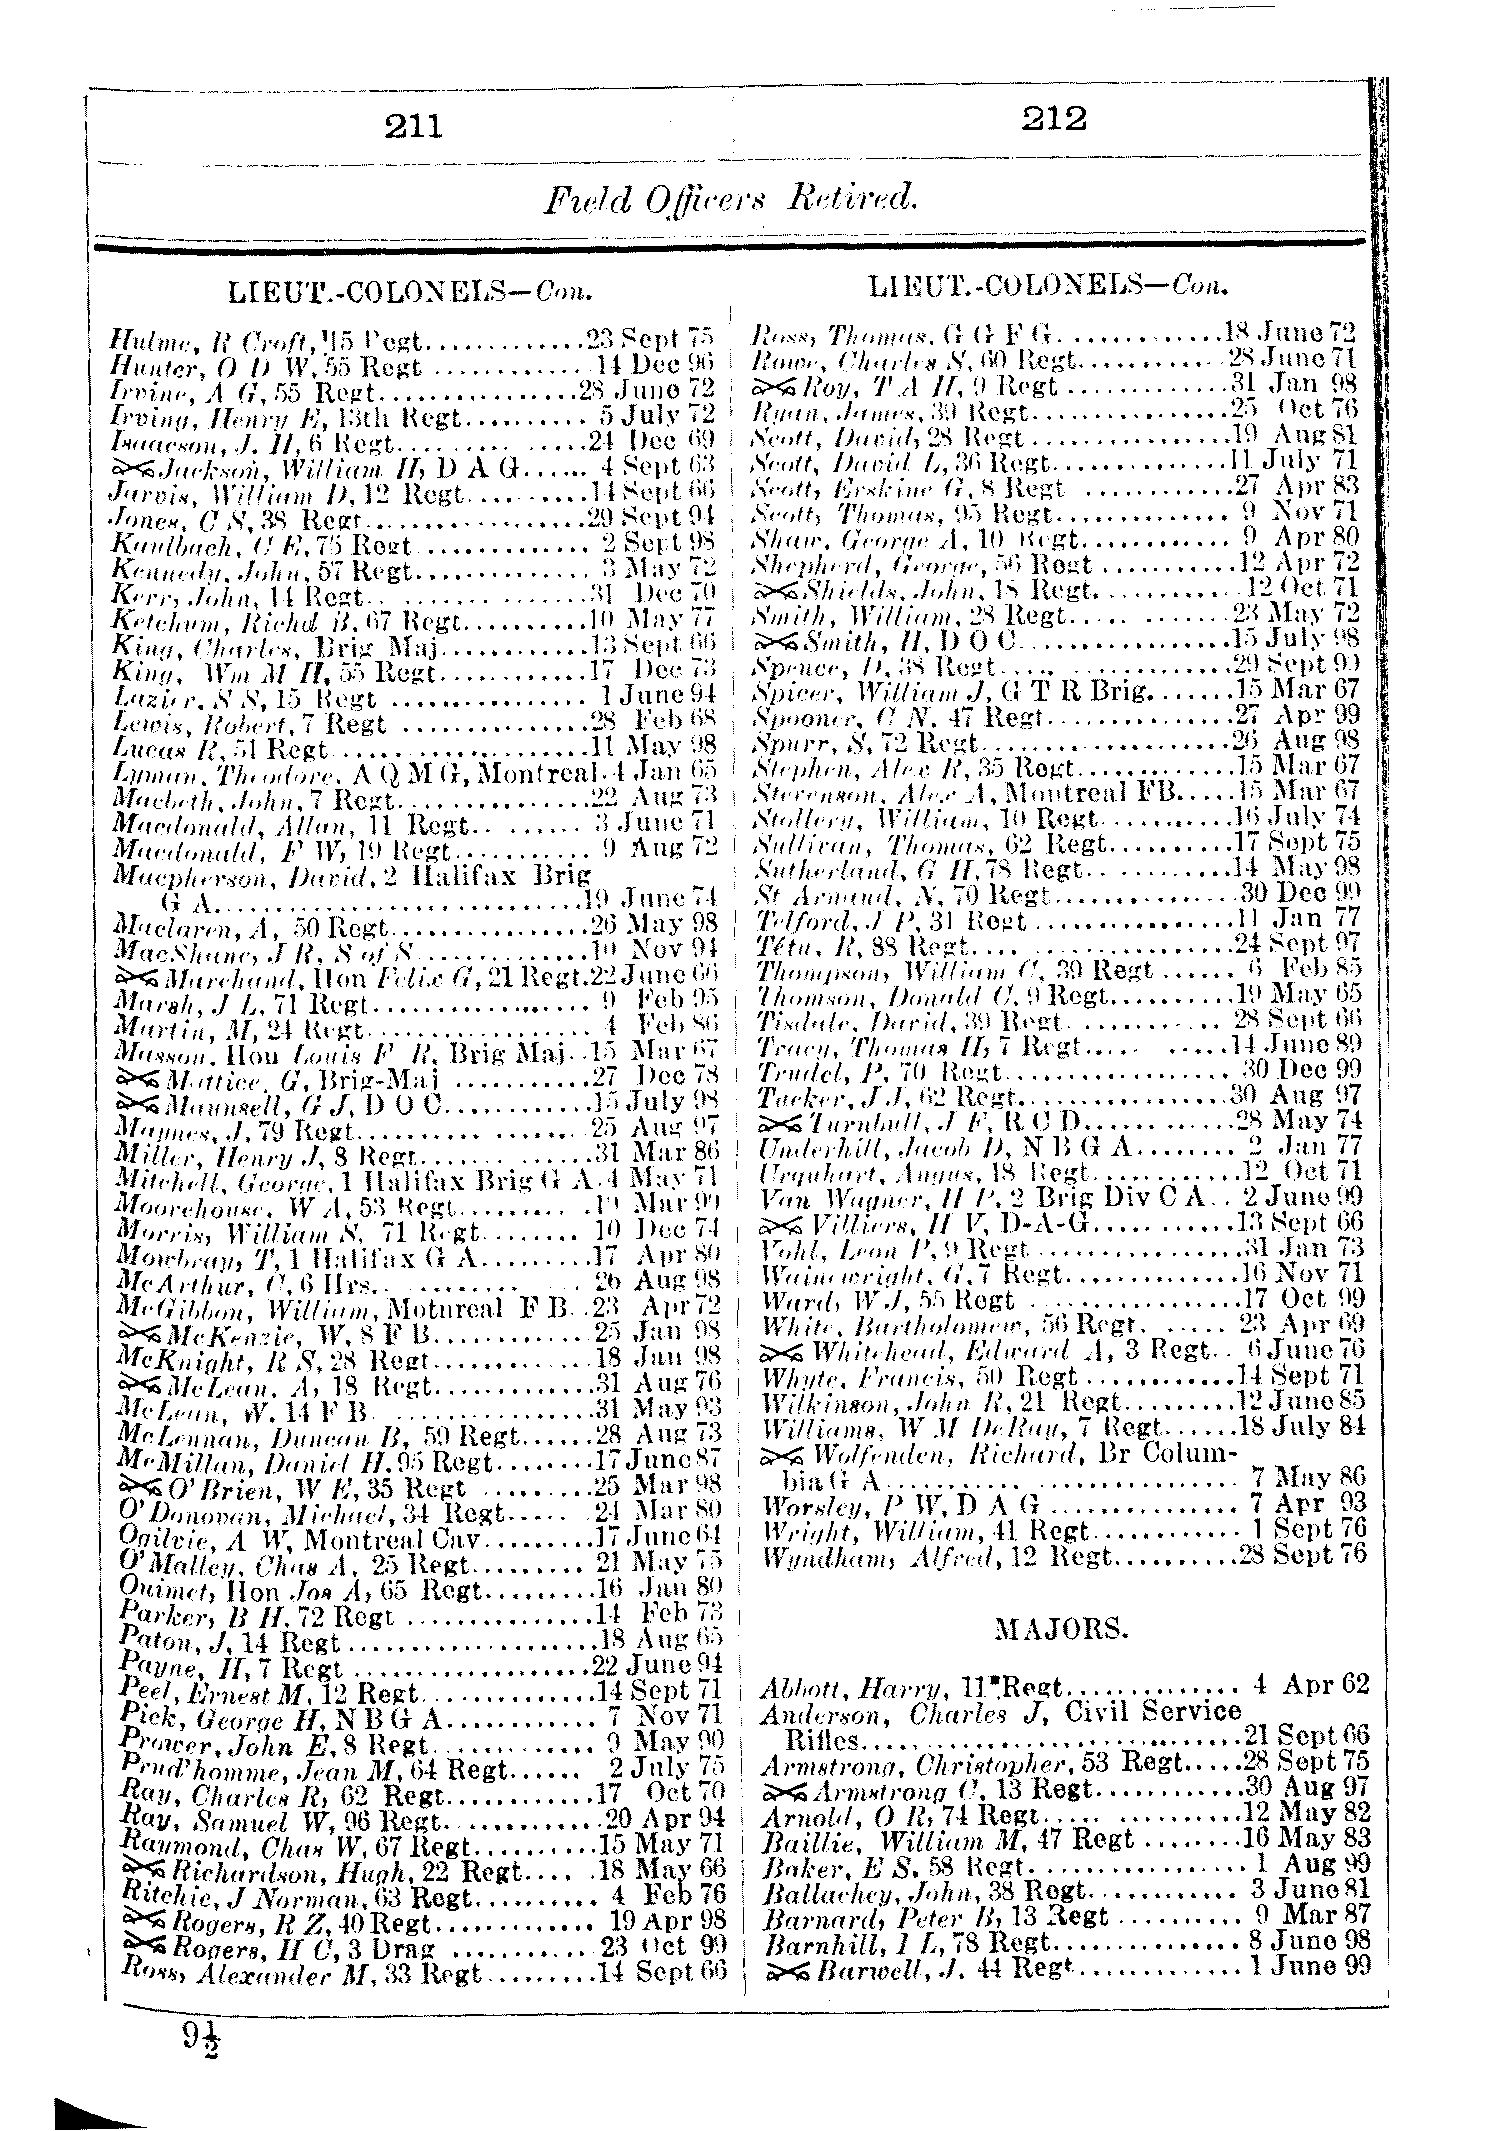 211
212
Field Officers Retired.
LIEUT.-COLONELS—Con.
Hulme, R Croft, 15 Regt.............23 Sept 75
Hunter, O D W, 55 Regt .............14 Dec 96
Irvine, A G, 55 Regt.................28 June 72
Irving, Henry E, 13th Regt.......... 5 July 72
Isaacson, J. H, 6 Regt...............24 Dec 69
Jackson, William H, D A G...... 4 Sept 63
Jarvis, William D, 12 Regt..........14 Sept 66
Jones, C S, 38 Regt..................29 Sept 94
Kaulbach, C E, 75 Regt ............. 2 Sept 98
Kennedy, John, 57 Regt.............. 3 May 72
Kerr, John, 14 Regt..................31 Dec 70
Ketchum, Richd B, 67 Regt..........10 May 77
King, Charles, Brig Maj.............13 Sept 66
King, Wm M H, 55 Regt.............17 Dec 73
Lazier, S S, 15 Regt ................ 1 June 94
Lewis, Robert, 7 Regt ...............28 Feb 68
Lucas R, 51 Regt....................11 May 98
Lyman, Theodore, A Q M G, Montreal.4 Jan 65
Macbeth, John, 7 Regt...............22 Aug 73
Macdonald, Allan, 11 Regt.. ....... 3 June 71
Macdonald, F W, 19 Regt........... 9 Aug 72
Macpherson, David, 2 Halifax Brig
G A.............................19 June 74
Maclaren, A, 50 Regt................26 May 98
MacShane, J R, S of S .............10 Nov 94
Marchand, Hon Felix G, 21 Regt.22 June 66
Marsh, J L, 71 Regt................. 9 Feb 95
Martin, M, 24 Regt.................. 4 Feb 86
Masson, Hon Louis F R, Brig Maj..15 Mar 67
Mattice, G, Brig-Maj ...........27 Dec 78
Maunsell, G J, D O C............15 July 98
Maynes, J, 79 Regt........... ........25 Aug 97
Miller, Henry J, 8 Regt..............31 Mar 86
Mitchell, George, 1 Halifax Brig G A.4 May 71
Moorehouse, W A, 53 Regt......... .19 Mar 99
Morris, William S, 71 Regt........ 10 Dec 74
Mowbray, T, 1 Halifax G A.........17 Apr 80
McArthur, C, 6 Hrs.. ............ 26 Aug 98
McGibbon, William, Motnreal F B..23 Apr 72
McKenzie, W, 8 F B.............25 Jan 98
McKnight, R S, 28 Regt.............18 Jan 98
McLean, A, 18 Regt..............31 Aug 76
McLean, W. 14 F B..................31 May 93
McLennan, Duncan B, 59 Regt......28 Aug 73
McMillan, Daniel H, 95 Regt........17 June 87
O'Brien, W E, 35 Regt ..........25 Mar 98
O'Donovan, Michael, 34 Regt..... 24 Mar 80
Ogilvie, A W, Montreal Cav.........17 June 64
O'Malley, Chas A, 25 Regt......... 21 May 75
Ouimet, Hon Jos A, 65 Regt.........16 Jan 80
Parker, B H, 72 Regt ...............14 Feb 73
Paton, J, 14 Regt....................18 Aug 65
Payne, H, 7 Regt ...................22 June 94
Peel, Ernest M, 12 Regt.............14 Sept 71
Pick, George H, N B G A............ 7 Nov 71
Prower, John E, 8 Regt............. 9 May 90
Prud'homme, Jean M, 64 Regt...... 2 July 75
Ray, Charles R, 62 Regt............17 Oct 70
Ray, Samuel W, 96 Regt............20 Apr 94
Raymond, Chas W, 67 Regt.........15 May 71
Richardson, Hugh, 22 Regt.... .18 May 66
Ritchie, J Norman, 63 Regt.......... 4 Feb 76
Rogers, R Z, 40 Regt............. 19 Apr 98
Rogers, H C, 3 Drag ........... 23 Oct 99
Ross, Alexander M, 33 Regt.........14 Sept 66
9½
LIEUT.-COLONELS—Con.
Ross, Thomas, G G F G.............18 June 72
Rowe, Charles S, 60 Regt............28 June 71
Roy, T A H, 9 Regt .............31 Jan 98
Ryan, James, 39 Regt................25 Oct 76
Scott, David, 28 Regt ................19 Aug 81
Scott, David L, 36 Regt..............11 July 71
Scott, Erskine G, 8 Regt ............27 Apr 83
Scott, Thomas, 95 Regt.............. 9 Nov 71
Shaw, George A, 10 Regt............ 9 Apr 80
Shepherd, George, 56 Regt ...........12 Apr 72
Shields, John, 18 Regt............12 Oct 71
Smith, William, 28 Regt..... ........23 May 72
Smith, H, D O C.................15 July 98
Spence, D, 38 Regt..... .............29 Sept 99
Spicer, William J, G T R Brig.......15 Mar 67
Spooner, C N, 47 Regt...............27 Apr 99
Spurr, S, 72 Regt....................26 Aug 98
Stephen, Alex R, 35 Regt.............15 Mar 67
Stevenson, Alex A, Montreal FB.....15 Mar 67
Stollery, William, 10 Regt...........16 July 74
Sullivan, Thomas, 62 Regt..........17 Sept 75
Sutherland, G H, 78 Regt............14 May 98
St Armand, N, 70 Regt...............30 Dec 99
Telford, J P, 31 Regt ................11 Jan 77
Tétu, R, 88 Regt.....................24 Sept 97
Thompson, William C, 39 Regt ...... 6 Feb 85
Thomson, Donald C, 9 Regt..........19 May 65
Tisdale, David, 39 Regt............. 28 Sept 66
Tracy, Thomas H, 7 Regt..... ......14 June 89
Trudel, P, 70 Regt.................. 30 Dec 99
Tucker, J J, 62 Regt.................30 Aug 97
Turnbull, J F, R C D............28 May 74
Underhill, Jacob D, N B G A........ 2 Jan 77
Urquhart, Angus, 18 Regt............12 Oct 71
Van Wagner, H P, 2 Brig Div C A.. 2 June 99
Villiers, H V, D-A-G............13 Sept 66
Vohl, Leon P, 9 Regt.................31 Jan 73
Wainewright, G, 7 Regt..............16 Nov 71
Ward, W J, 55 Regt .................17 Oct 99
White, Bartholomew, 56 Regt. ..... 23 Apr 69
Whitehead, Edward A, 3 Regt.. 6 June 76
Whyte, Francis, 50 Regt ............14 Sept 71
Wilkinson, John R, 21 Regt.........12 June 85
Williams, W M DeRay, 7 Regt......18 July 84
Wolfenden, Richard, Br Colum-
bia G A............................ 7 May 86
Worsley, P W, D A G ............... 7 Apr 93
Wright, William, 41 Regt............ 1 Sept 76
Wyndham, Alfred, 12 Regt..........28 Sept 76
MAJORS.
Abbott, Harry, 11 Regt............. 4 Apr 62
Anderson, Charles J, Civil Service
Rifles...............................21 Sept 66
Armstrong, Christopher, 53 Regt.....28 Sept 75
Armstrong C, 13 Regt............30 Aug 97
Arnold, O R, 74 Regt..... ..........12 May 82
Baillie, William M, 47 Regt ........16 May 83
Baker, E S, 58 Regt................. 1 Aug 99
Ballachey, John, 38 Regt............ 3 June 81
Barnard, Peter B, 13 Regt .......... 9 Mar 87
Barnhill, I L, 78 Regt............... 8 June 98
Barwell, J. 44 Regt............. 1 June 99